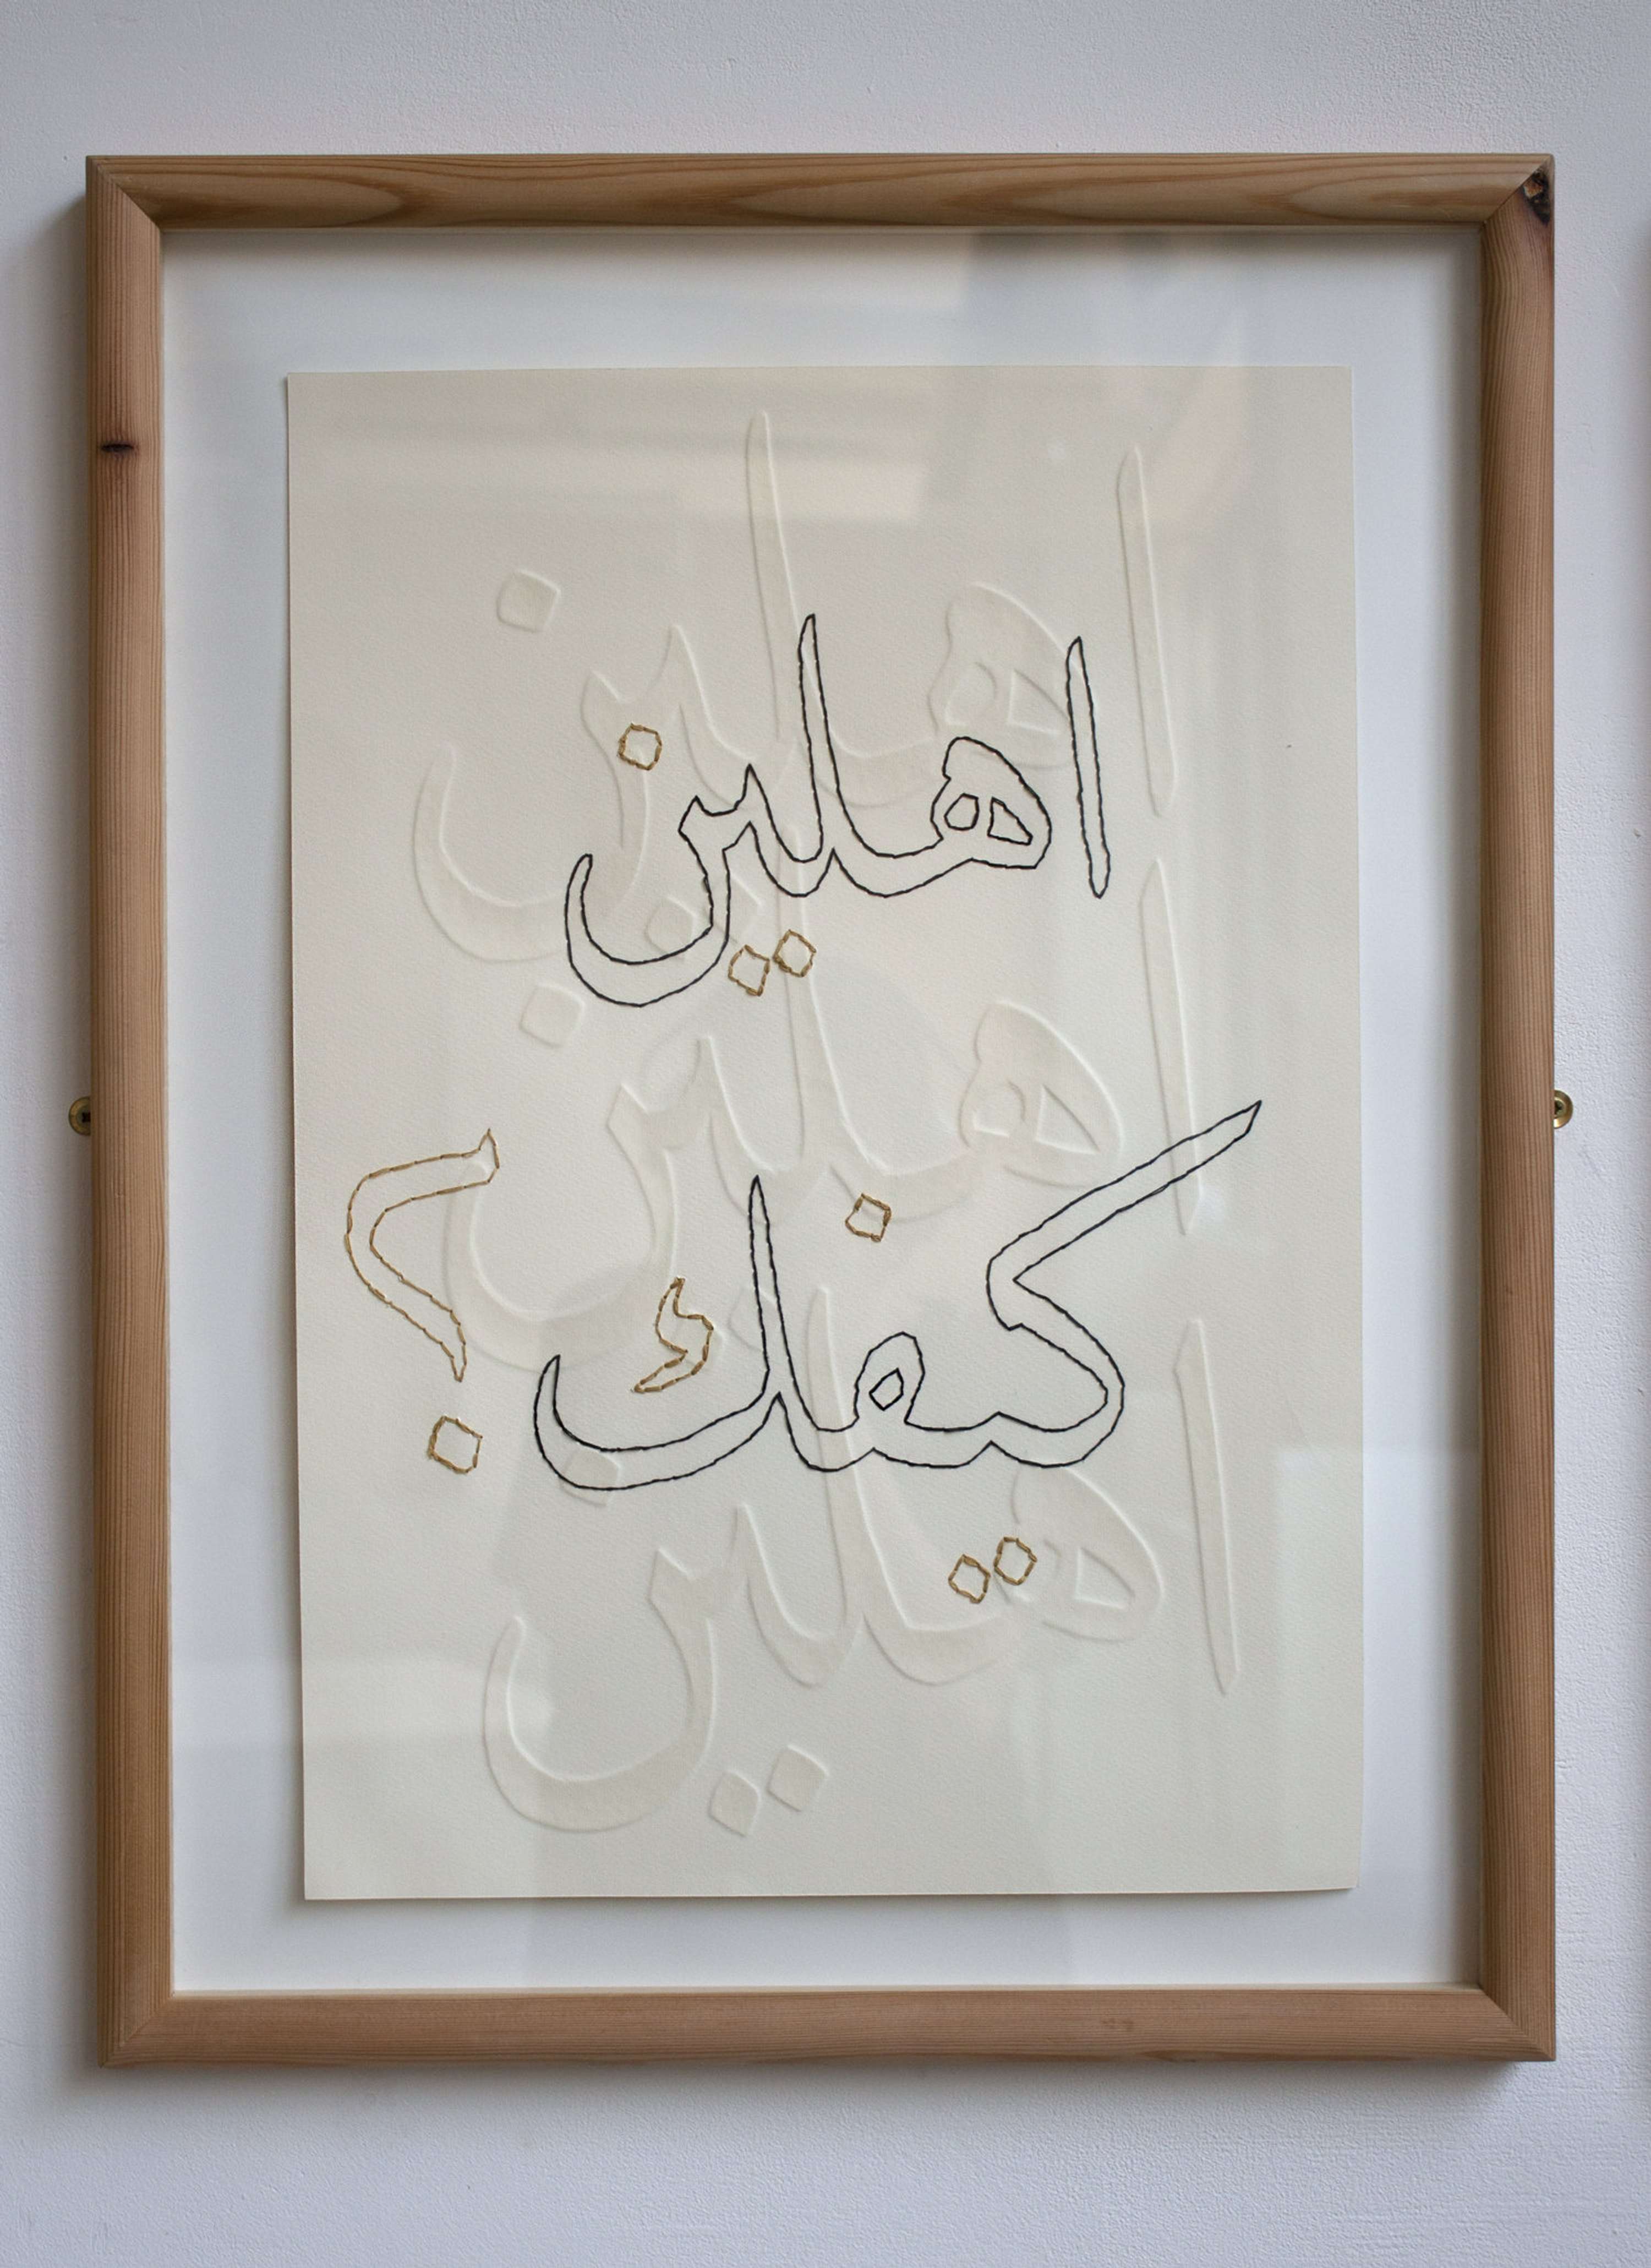 اهلين
اهلين
كيفك؟
اهلين
اهلين